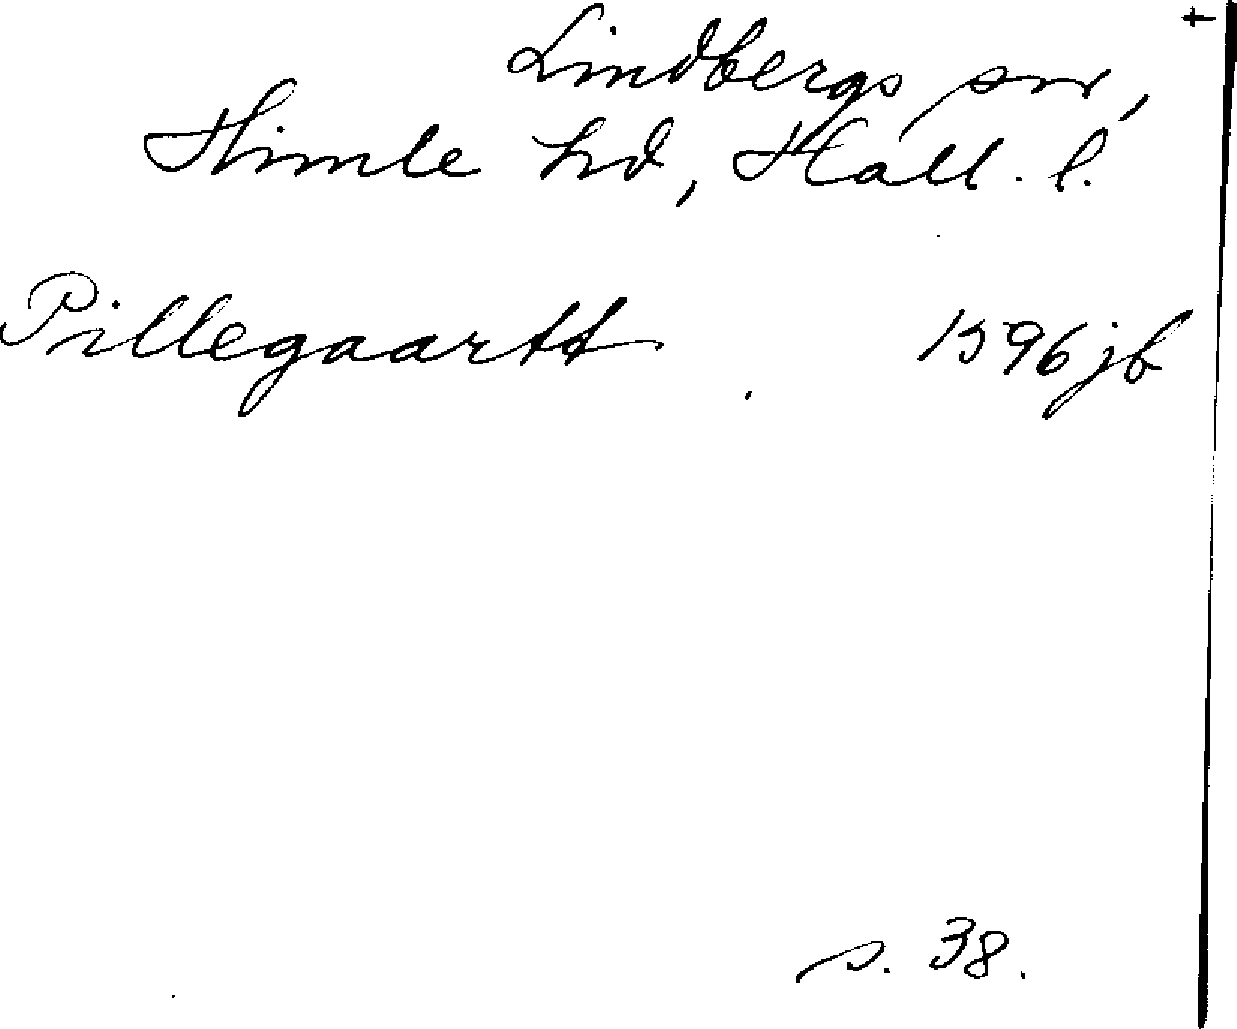 +
Lindbergs sn,
Himle hd, Hall. l.
Pillegaartt 1596 jb
s. 38.